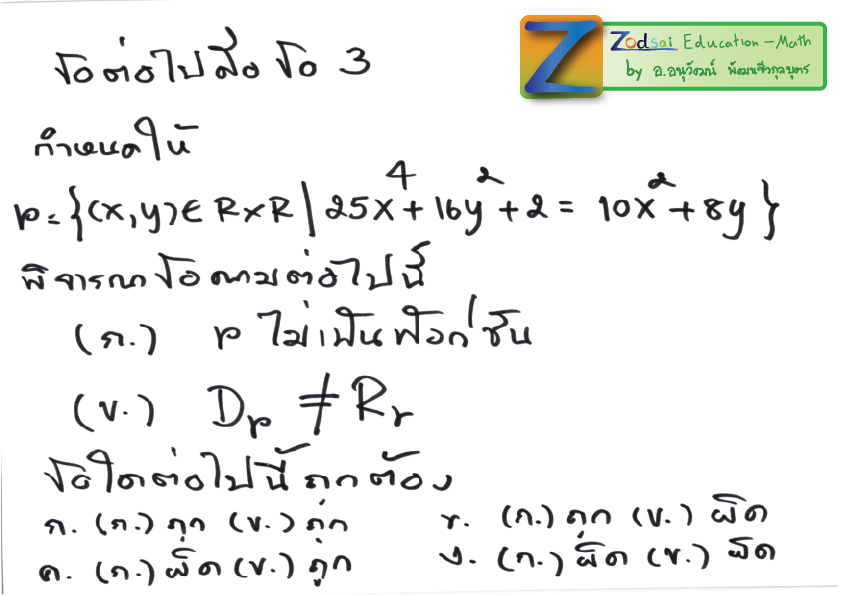 Zodsai Education - Math
by อ.อนุวัฒน์
ข้อต่อไปคือ ข้อ 3
กำหนดให้
r = {(x,y) ∈ R×R | 25x⁴ + 16y² + 2 = 10x² + 8y}
พิจารณาข้อความต่อไปนี้
(ก.) r ไม่เป็นฟังก์ชัน
(ข.) Dᵣ ≠ Rᵣ
ข้อใดต่อไปนี้ถูกต้อง
ก. (ก.) ถูก (ข.) ถูก ข. (ก.) ถูก (ข.) ผิด
ค. (ก.) ผิด (ข.) ถูก ง. (ก.) ผิด (ข.) ผิด